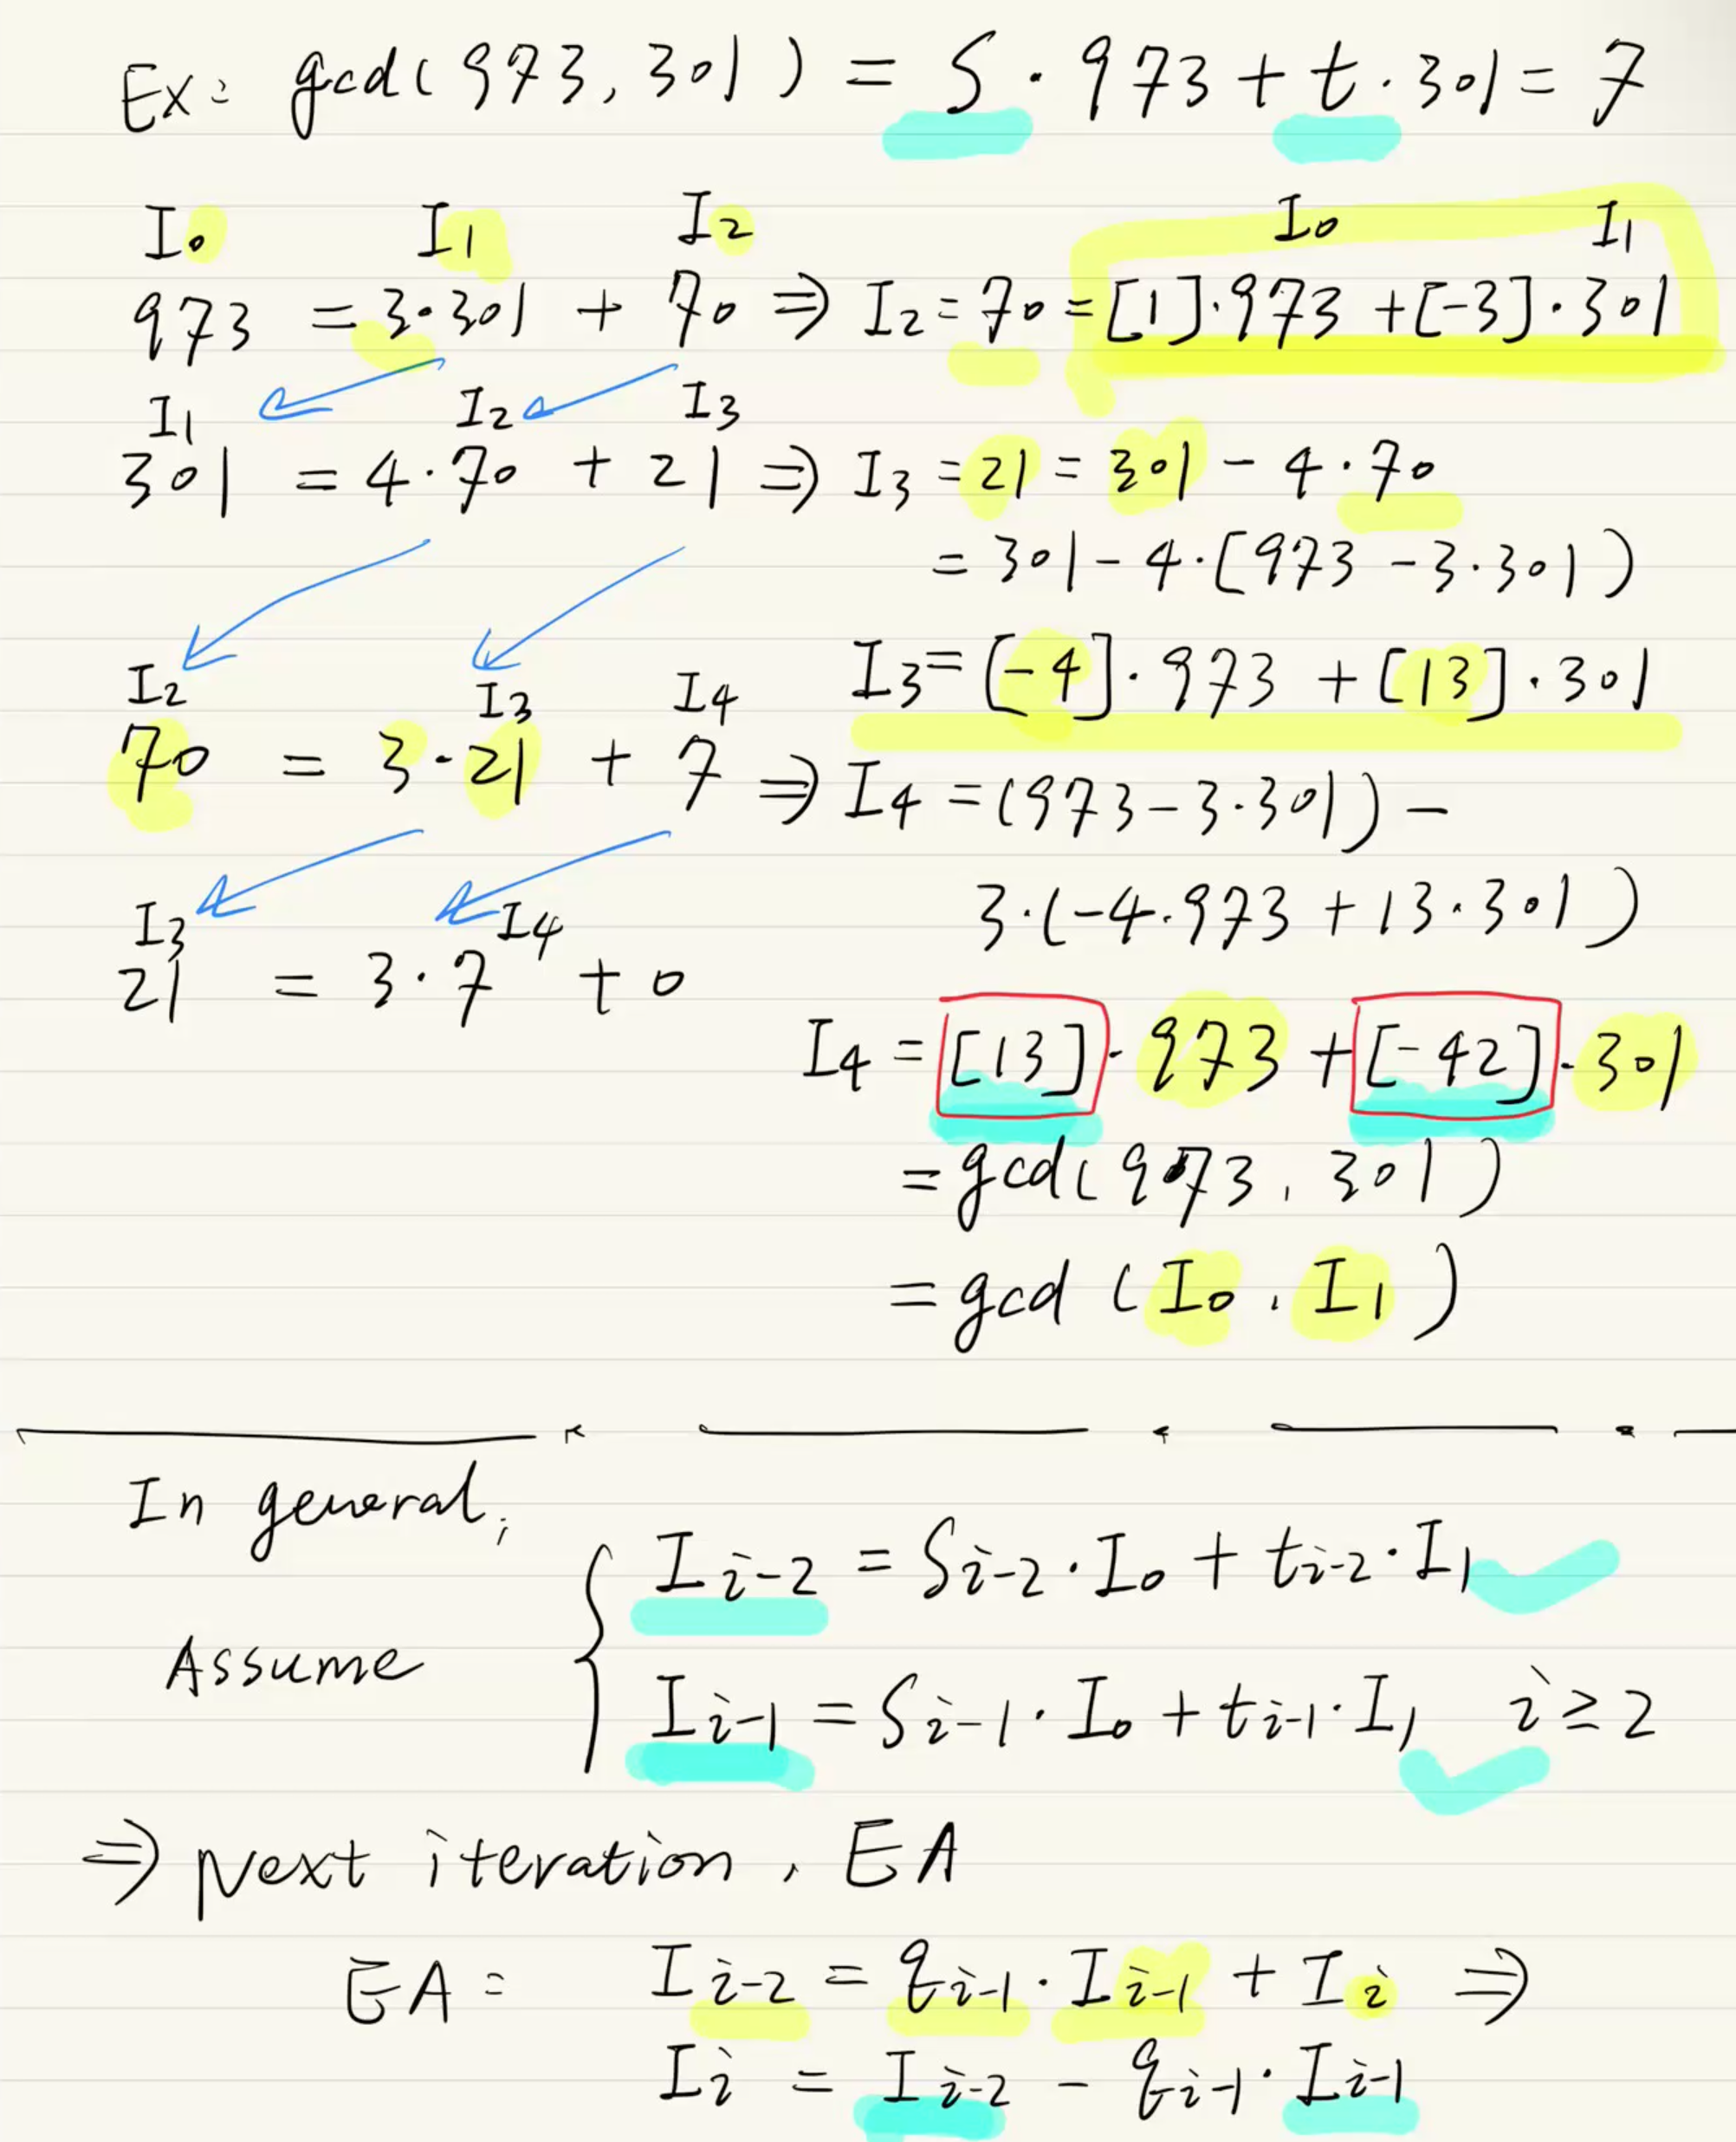 Ex: gcd(973, 301) = S · 973 + t · 301 = 7
I0 I1 I2 I0 I1
973 = 3·301 + 70 ⇒ I2 = 70 = [1]·973 + [-3]·301
I1 I2 I3
301 = 4·70 + 21 ⇒ I3 = 21 = 301 - 4·70
= 301 - 4·[973 - 3·301)
I3 = [-4]·973 + [13]·301
I2 I3 I4
70 = 3·21 + 7 ⇒ I4 = (973 - 3·301) -
3·(-4·973 + 13·301)
I3 I4
21 = 3·7 + 0
I4 = [13]·973 + [-42]·301
= gcd(973, 301)
= gcd (I0, I1)
In general,
Assume
Ii-2 = Si-2·I0 + ti-2·I1
Ii-1 = Si-1·I0 + ti-1·I1 i ≥ 2
⇒ Next iteration, EA
EA: Ii-2 = qi-1·Ii-1 + Ii ⇒
Ii = Ii-2 - qi-1·Ii-1